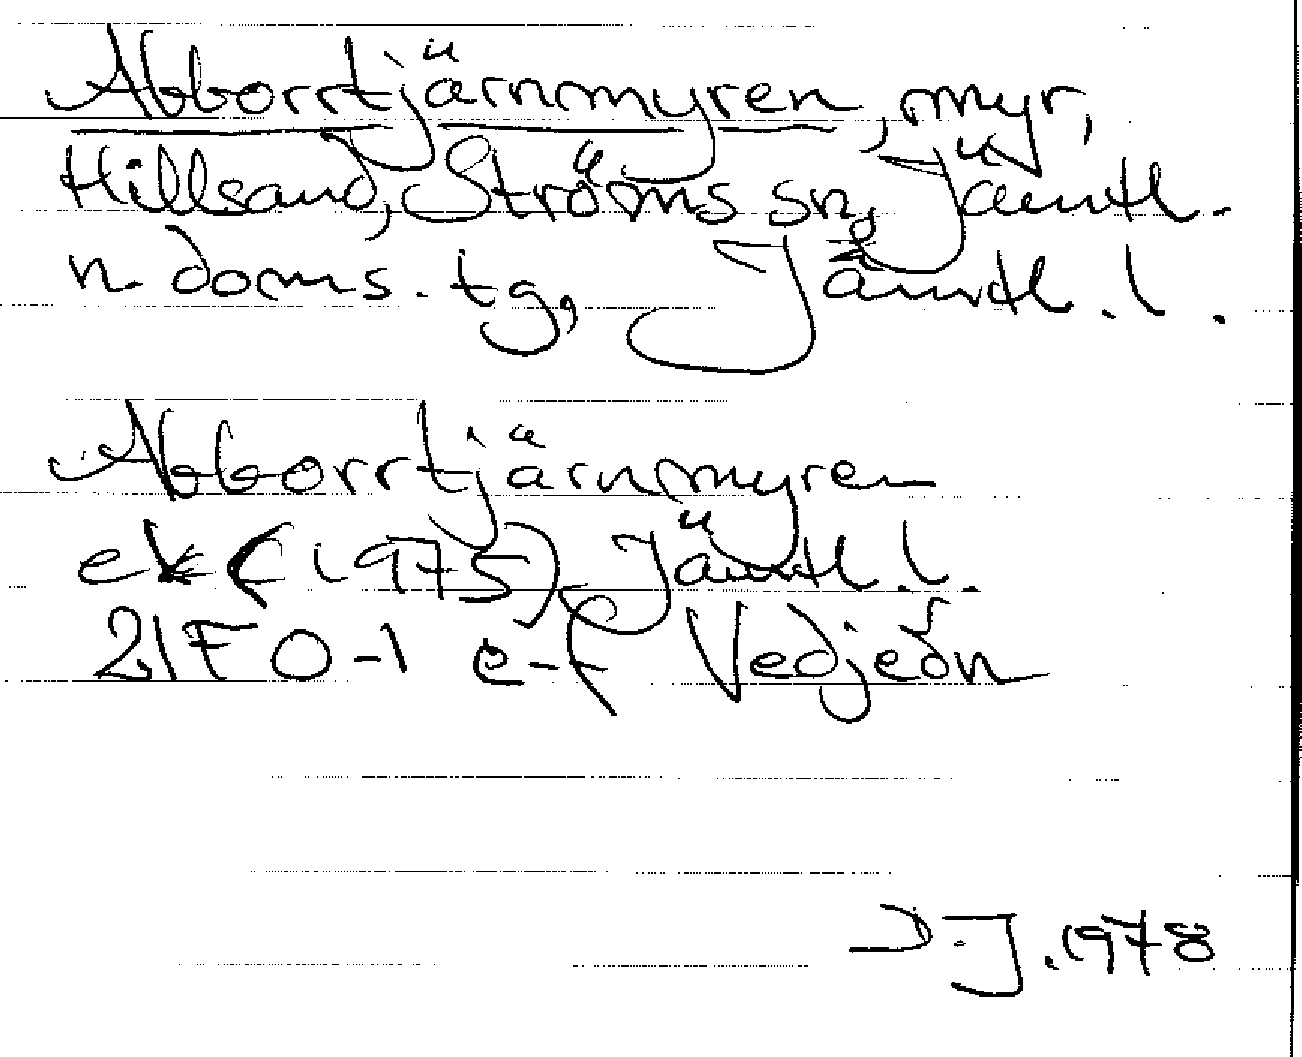 Abborrtjärnmyren, myr,
Hillsand, Ströms sn, Jämtl.
n. doms. tg, Jämtl. l.
Abborrtjärnmyren
ek (1975), Jämtl. l.
21F 0-1 e-f Vedjeön
D.J. 1978